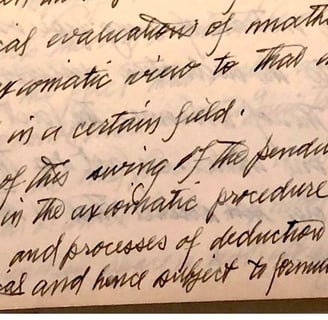 cal evaluations of mathe
axiomatic view to that
in a certain field.
of this swing of the pendu
in the axiomatic procedure
and processes of deduction
and hence subject to formu